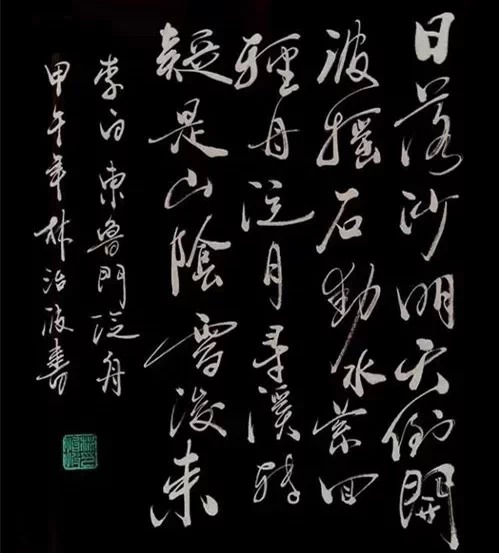 日落沙明天倒開
波搖石動水縈回
輕舟泛月尋溪轉
疑是山陰雪後來
李白東魯門泛舟
甲午年林治波書